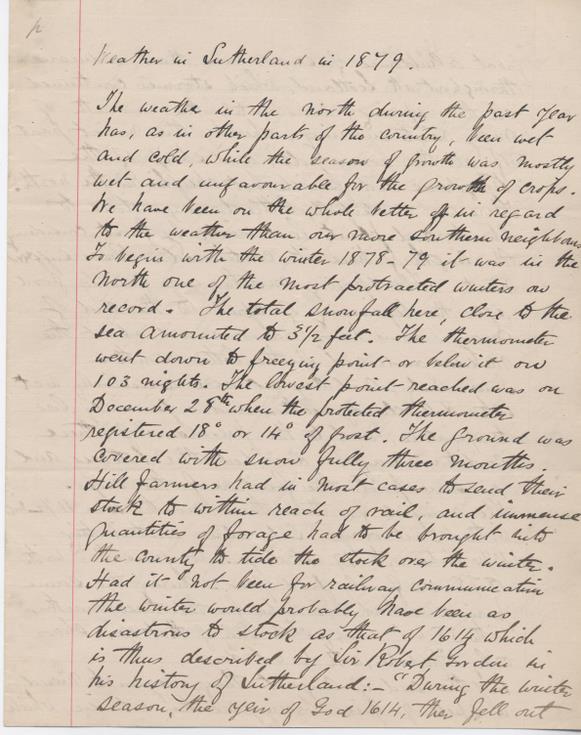 Weather in Sutherland in 1879.
The weather in the north during the past year
has, as in other parts of the country, been wet
and cold, while the season of growth was mostly
wet and unfavourable for the growth of crops.
We have been on the whole better off in regard
to the weather than our more southern neighbours
To begin with the winter 1878-79 it was in the
north one of the most protracted winters on
record. The total snowfall here, close to the
sea amounted to 3½ feet. The thermometer
went down to freezing point or below it on
103 nights. The lowest point reached was on
December 28th when the protected thermometer
registered 18° or 14° of frost. The ground was
covered with snow fully three months.
Hill farmers had in most cases to send their
stock to within reach of rail, and immense
quantities of forage had to be brought into
the county to tide the stock over the winter.
Had it not been for railway communication
the winter would probably have been as
disastrous to stock as that of 1614 which
is thus described by Sir Robert Gordon in
his history of Sutherland:- "During the winter
season, the yeir of God 1614, ther fell out